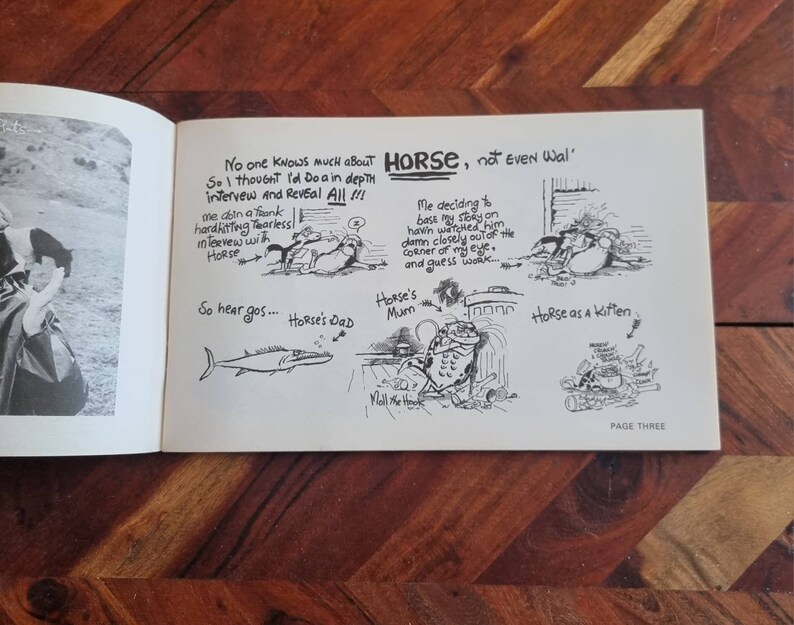 No one knows much about HORSE, not even Wal'
So I thought I'd Do a in depth
interview and Reveal All !!!
me doin a frank
hard hitting fearless
interview with
Horse
z
Me deciding to
base my story on
havin watched him
damn closely out of the
corner of my eye,
and guess work...
So hear gos...
Horse's Dad
Horse's
Mum
Moll the Hook
Horse as a Kitten
CRUNCH!
PAGE THREE